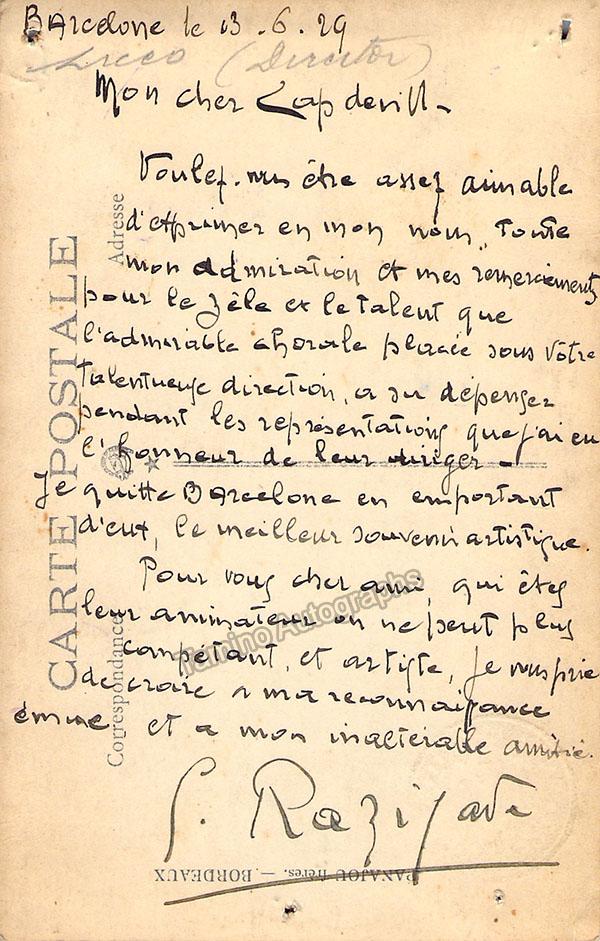 BArcelone le 13.6.29
Liceo (Director)
Mon cher Capdevill-
Voulez-vous être assez aimable
d'exprimer en mon nom, toute
mon admiration et mes remerciements
pour le zèle et le talent que
l'admirable chorale placée sous votre
talentueuse direction, a su dépenser
pendant les représentations que j'ai eu
l'honneur de leur diriger-
Je quitte BArcelone en emportant
d'eux, le meilleur souvenir artistique.
Pour vous cher ami, qui êtes
leur animateur on ne peut plus
compétant, et artiste, je vous prie
de croire a ma reconnaissance
émue et a mon inaltérable amitié.
G. Razigade
CARTE POSTALE
Correspondance
Adresse
PANAJOU frères. — BORDEAUX
Tamino Autographs